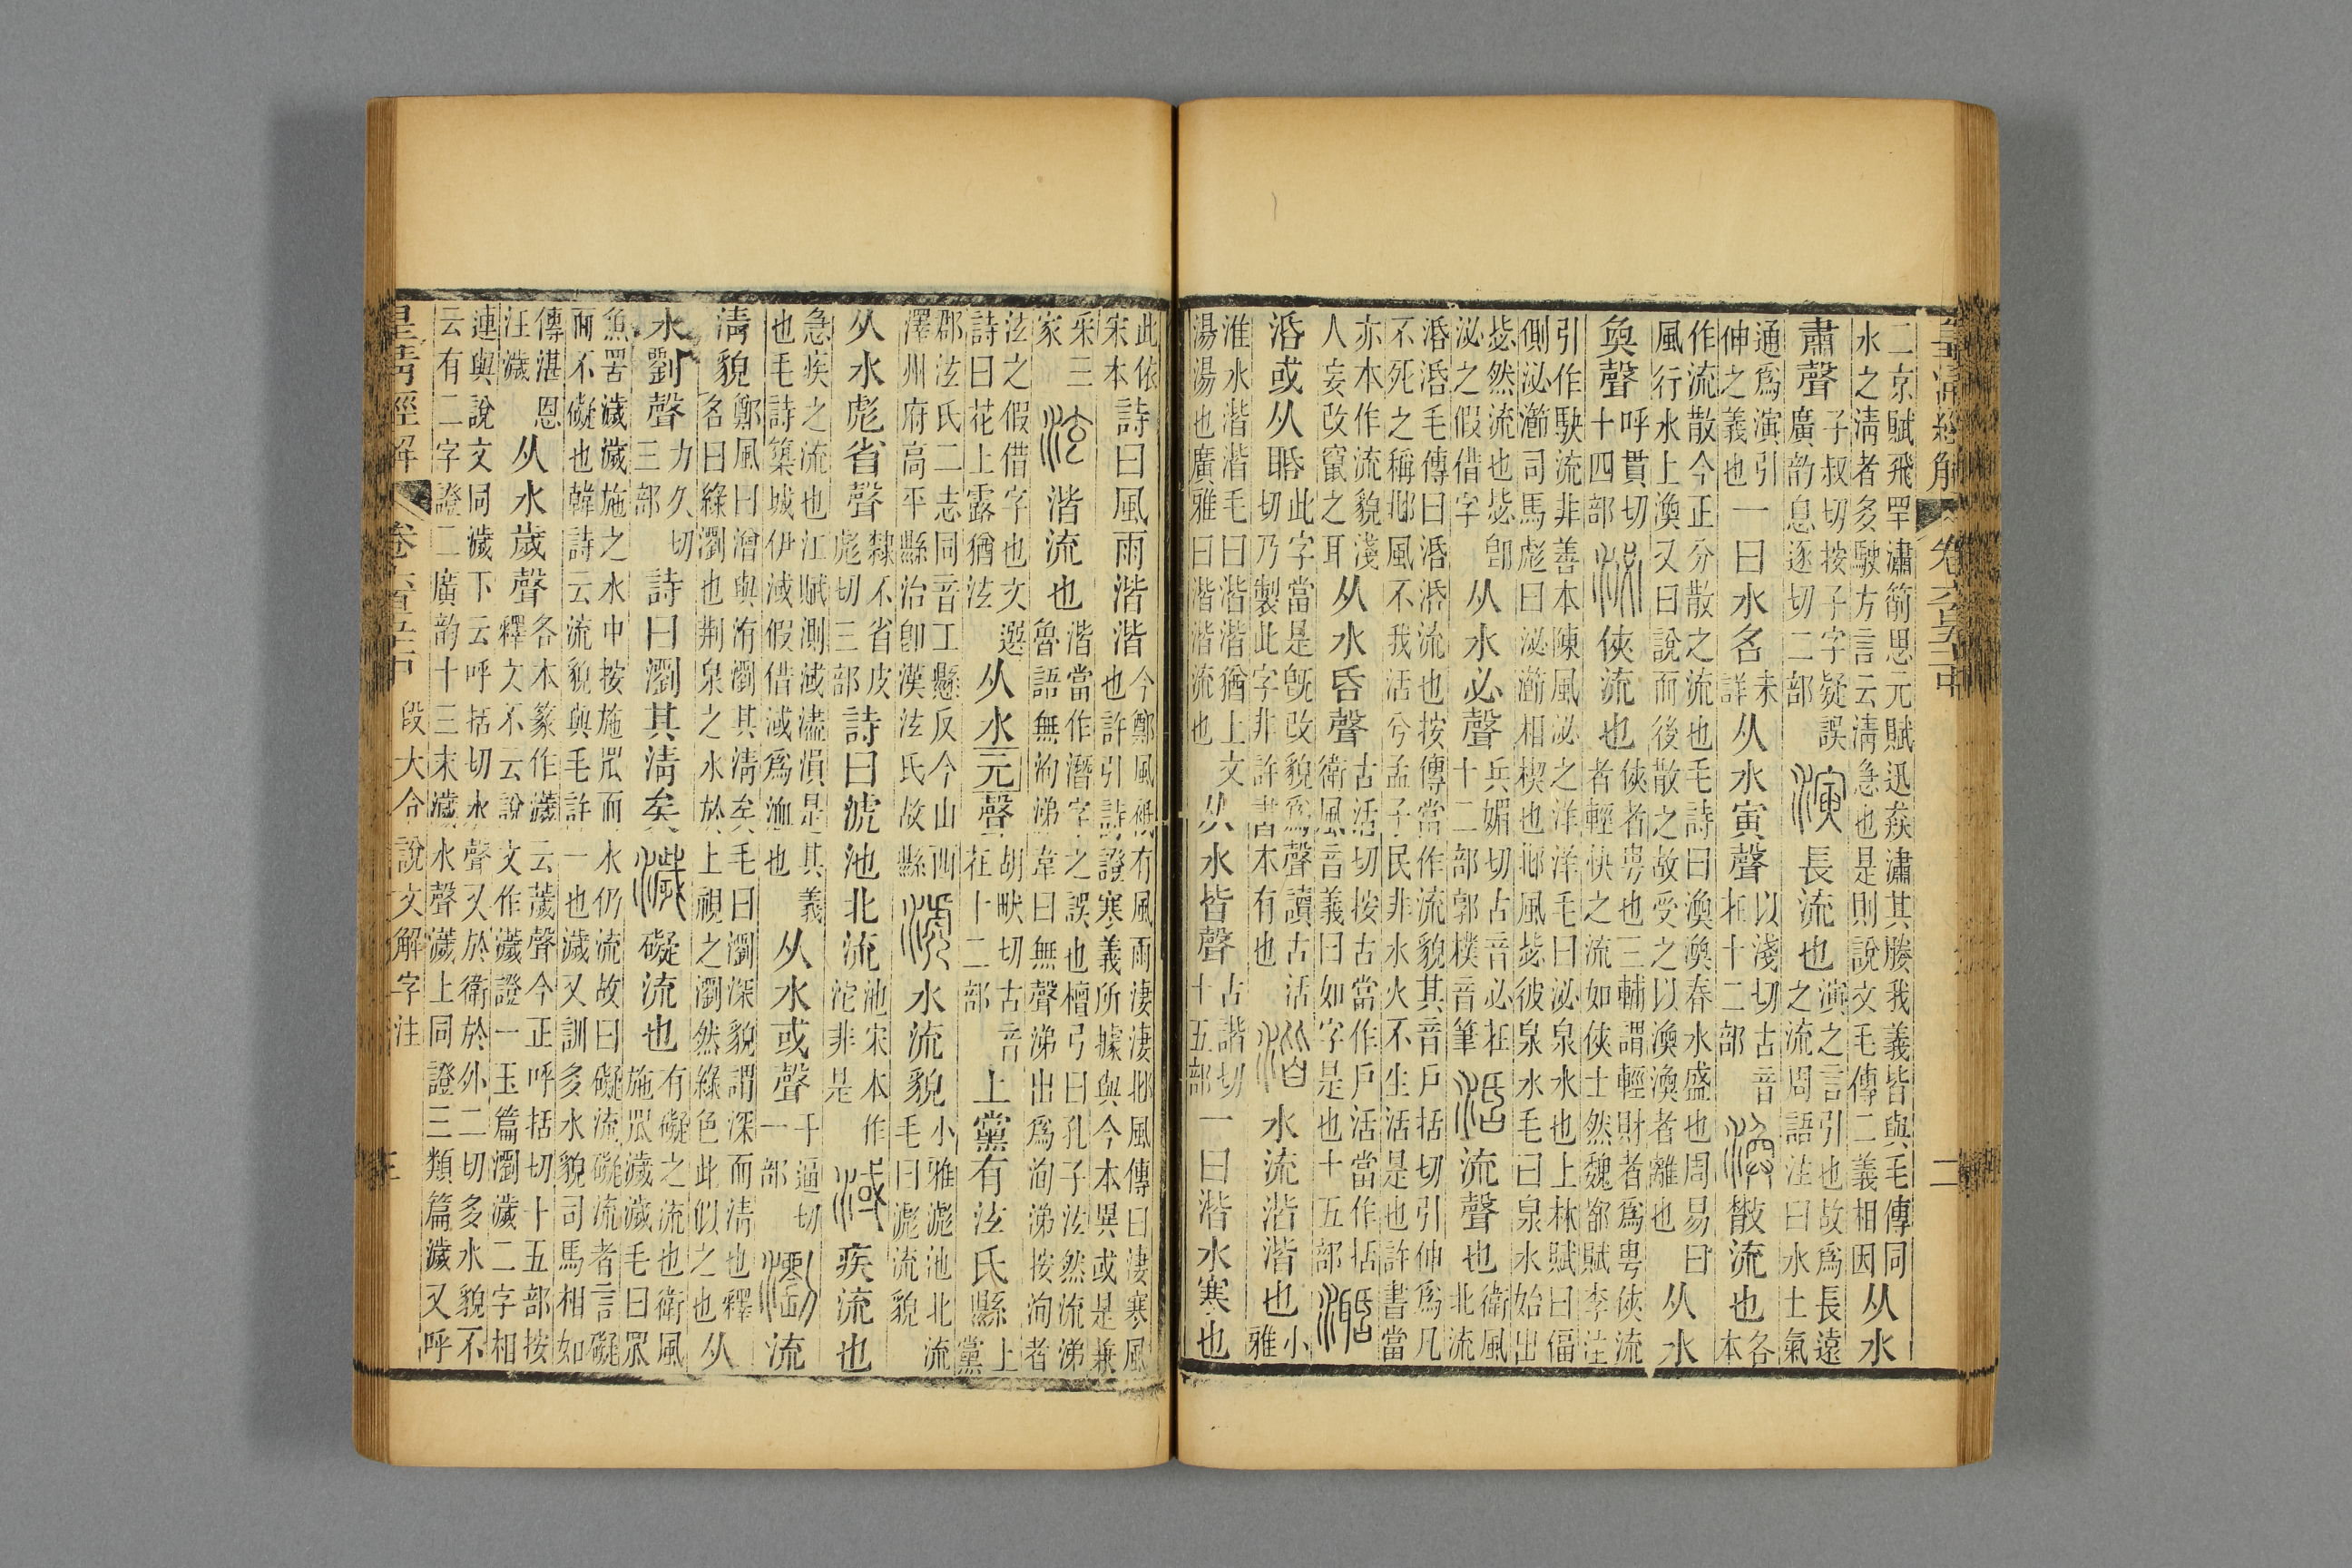 皇清經解 卷六百五十 二
二京賦飛罕潚箾思元賦迅猋潚其媵我義皆與毛傳同从水
水之清者多駛方言云清急也是則說文毛傳二義相因
肅聲子叔切按子字疑誤廣韵息逐切二部 演 長流也演之言引也故爲長遠之流周語注曰水土氣
通爲演引伸之義也一曰水名未詳从水寅聲以淺切古音在十二部 渙 散流也各本
作流散今正分散之流也毛詩曰渙渙春水盛也周易曰風行水上渙又曰說而後散之故受之以渙渙者離也从水
奐聲呼貫切十四部 泌 俠流也俠者甹也三輔謂輕財者爲甹俠流者輕快之流如俠士然魏都賦李注
引作駃流非善本陳風泌之洋洋毛曰泌泉水也上林賦曰偪側泌瀄司馬彪曰泌瀄相楔也邶風毖彼泉水毛曰泉水始出
毖然流也毖卽泌之假借字从水必聲兵媚切古音必在十二部郭樸音筆 活 流聲也衛風北流
湉湉毛傳曰湉湉流也按傳當作流貌其音戶括切引伸爲凡不死之稱邶風不我活兮孟子民非水火不生活是也許書當
亦本作流貌淺人妄改竄之耳从水昏聲古活切按古當作戶活當作括衛風音義曰如字是也十五部 𣽅
湉或从聒此字當是旣改貌爲聲讀古活切乃製此字非許書本有也 湝 水流湝湝也小雅
淮水湝湝毛曰湝湝猶湯湯也廣雅曰湝湝流也上文从水皆聲古諧切十五部一曰湝水寒也
此依宋本詩曰風雨湝湝今鄭風祇有風雨淒淒邶風傳曰淒寒風也許引詩證寒義所據與今本異或是兼
采三家 泫 湝流也湝當作潛字之誤也檀弓曰孔子泫然流涕魯語無洵涕韋曰無聲涕出爲洵涕按洵者
泫之假借字也文選詩曰花上露猶泫从水元聲胡畎切古音在十二部上黨有泫氏縣上黨
郡泫氏二志同音工懸反今山西澤州府高平縣治卽漢泫氏故縣 淲 水流貌小雅滮池北流毛曰滮流貌
从水彪省聲隸不省皮彪切三部詩曰淲池北流池宋本作沱非是 淢 疾流也
急疾之流也江賦測淢濜溳是其義也毛詩築城伊淢假借淢爲洫也从水或聲于逼切一部 瀏 流
清貌鄭風曰溱與洧瀏其清矣毛曰瀏深貌謂深而清也釋名曰綠瀏也荆泉之水於上視之瀏然綠色此似之也从
水劉聲力久切三部詩曰瀏其清矣 濊 礙流也有礙之流也衛風施罛濊濊毛曰罛
魚罟濊濊施之水中按施罛而水仍流故曰礙流礙流者言礙而不礙也韓詩云流貌與毛許一也濊又訓多水貌司馬相如
傳湛恩汪濊从水歲聲各本篆作薉云薉聲今正呼括切十五部按釋文不云說文作薉證一玉篇瀏濊二字相
連與說文同濊下云呼括切水聲又於衛於外二切多水貌不云有二字證二廣韵十三末濊水聲濊上同證三類篇濊又呼
皇清經解 卷六百五十 段大令說文解字注 三